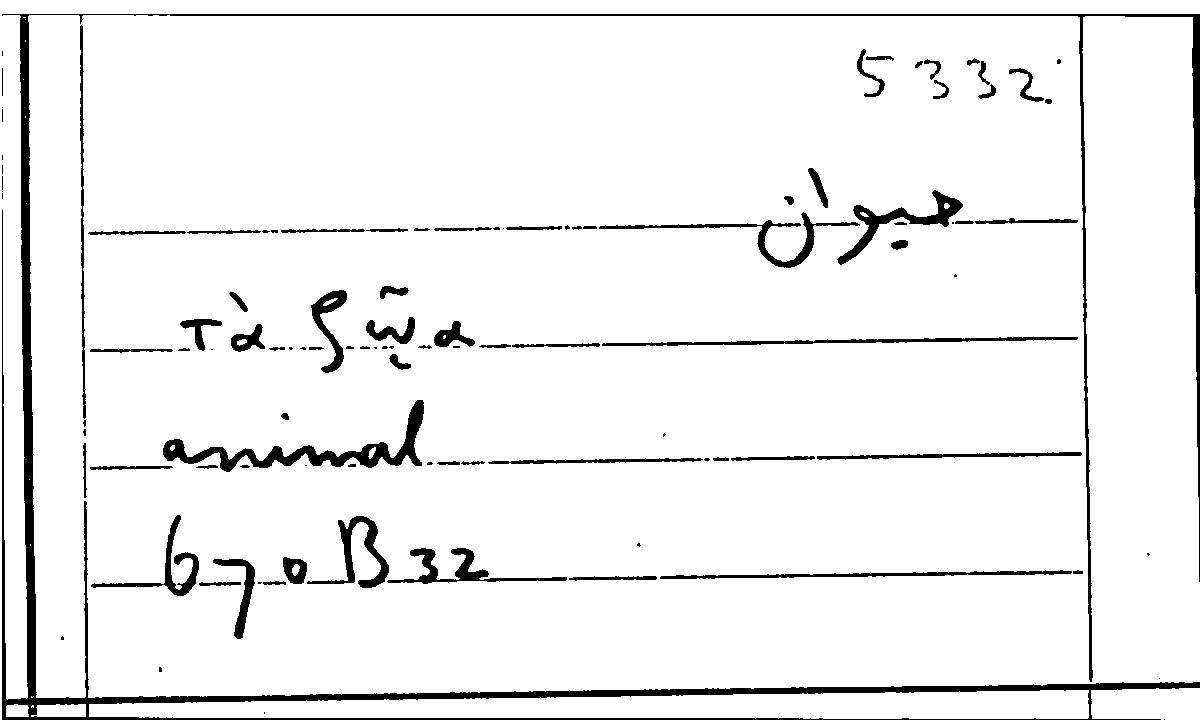 5332
حيوان
τὰ ζῷα
animal
670B32